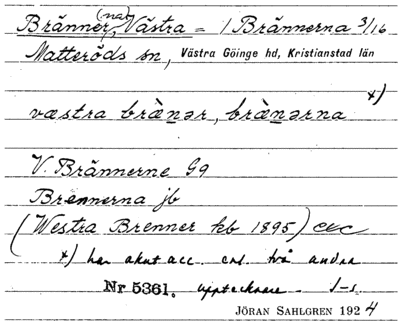 Bränner(na), Västra = 1 Brännerna 3/16
Matteröds sn, Västra Göinge hd, Kristianstad län
væstra brànər, brànərna x)
V. Brännerne G9
Brennerna jb
(Westra Brenner kb 1895)
x) har akut acc. enl. två andra
Nr 5361. upptecknare. J-s.
JÖRAN SAHLGREN 1924